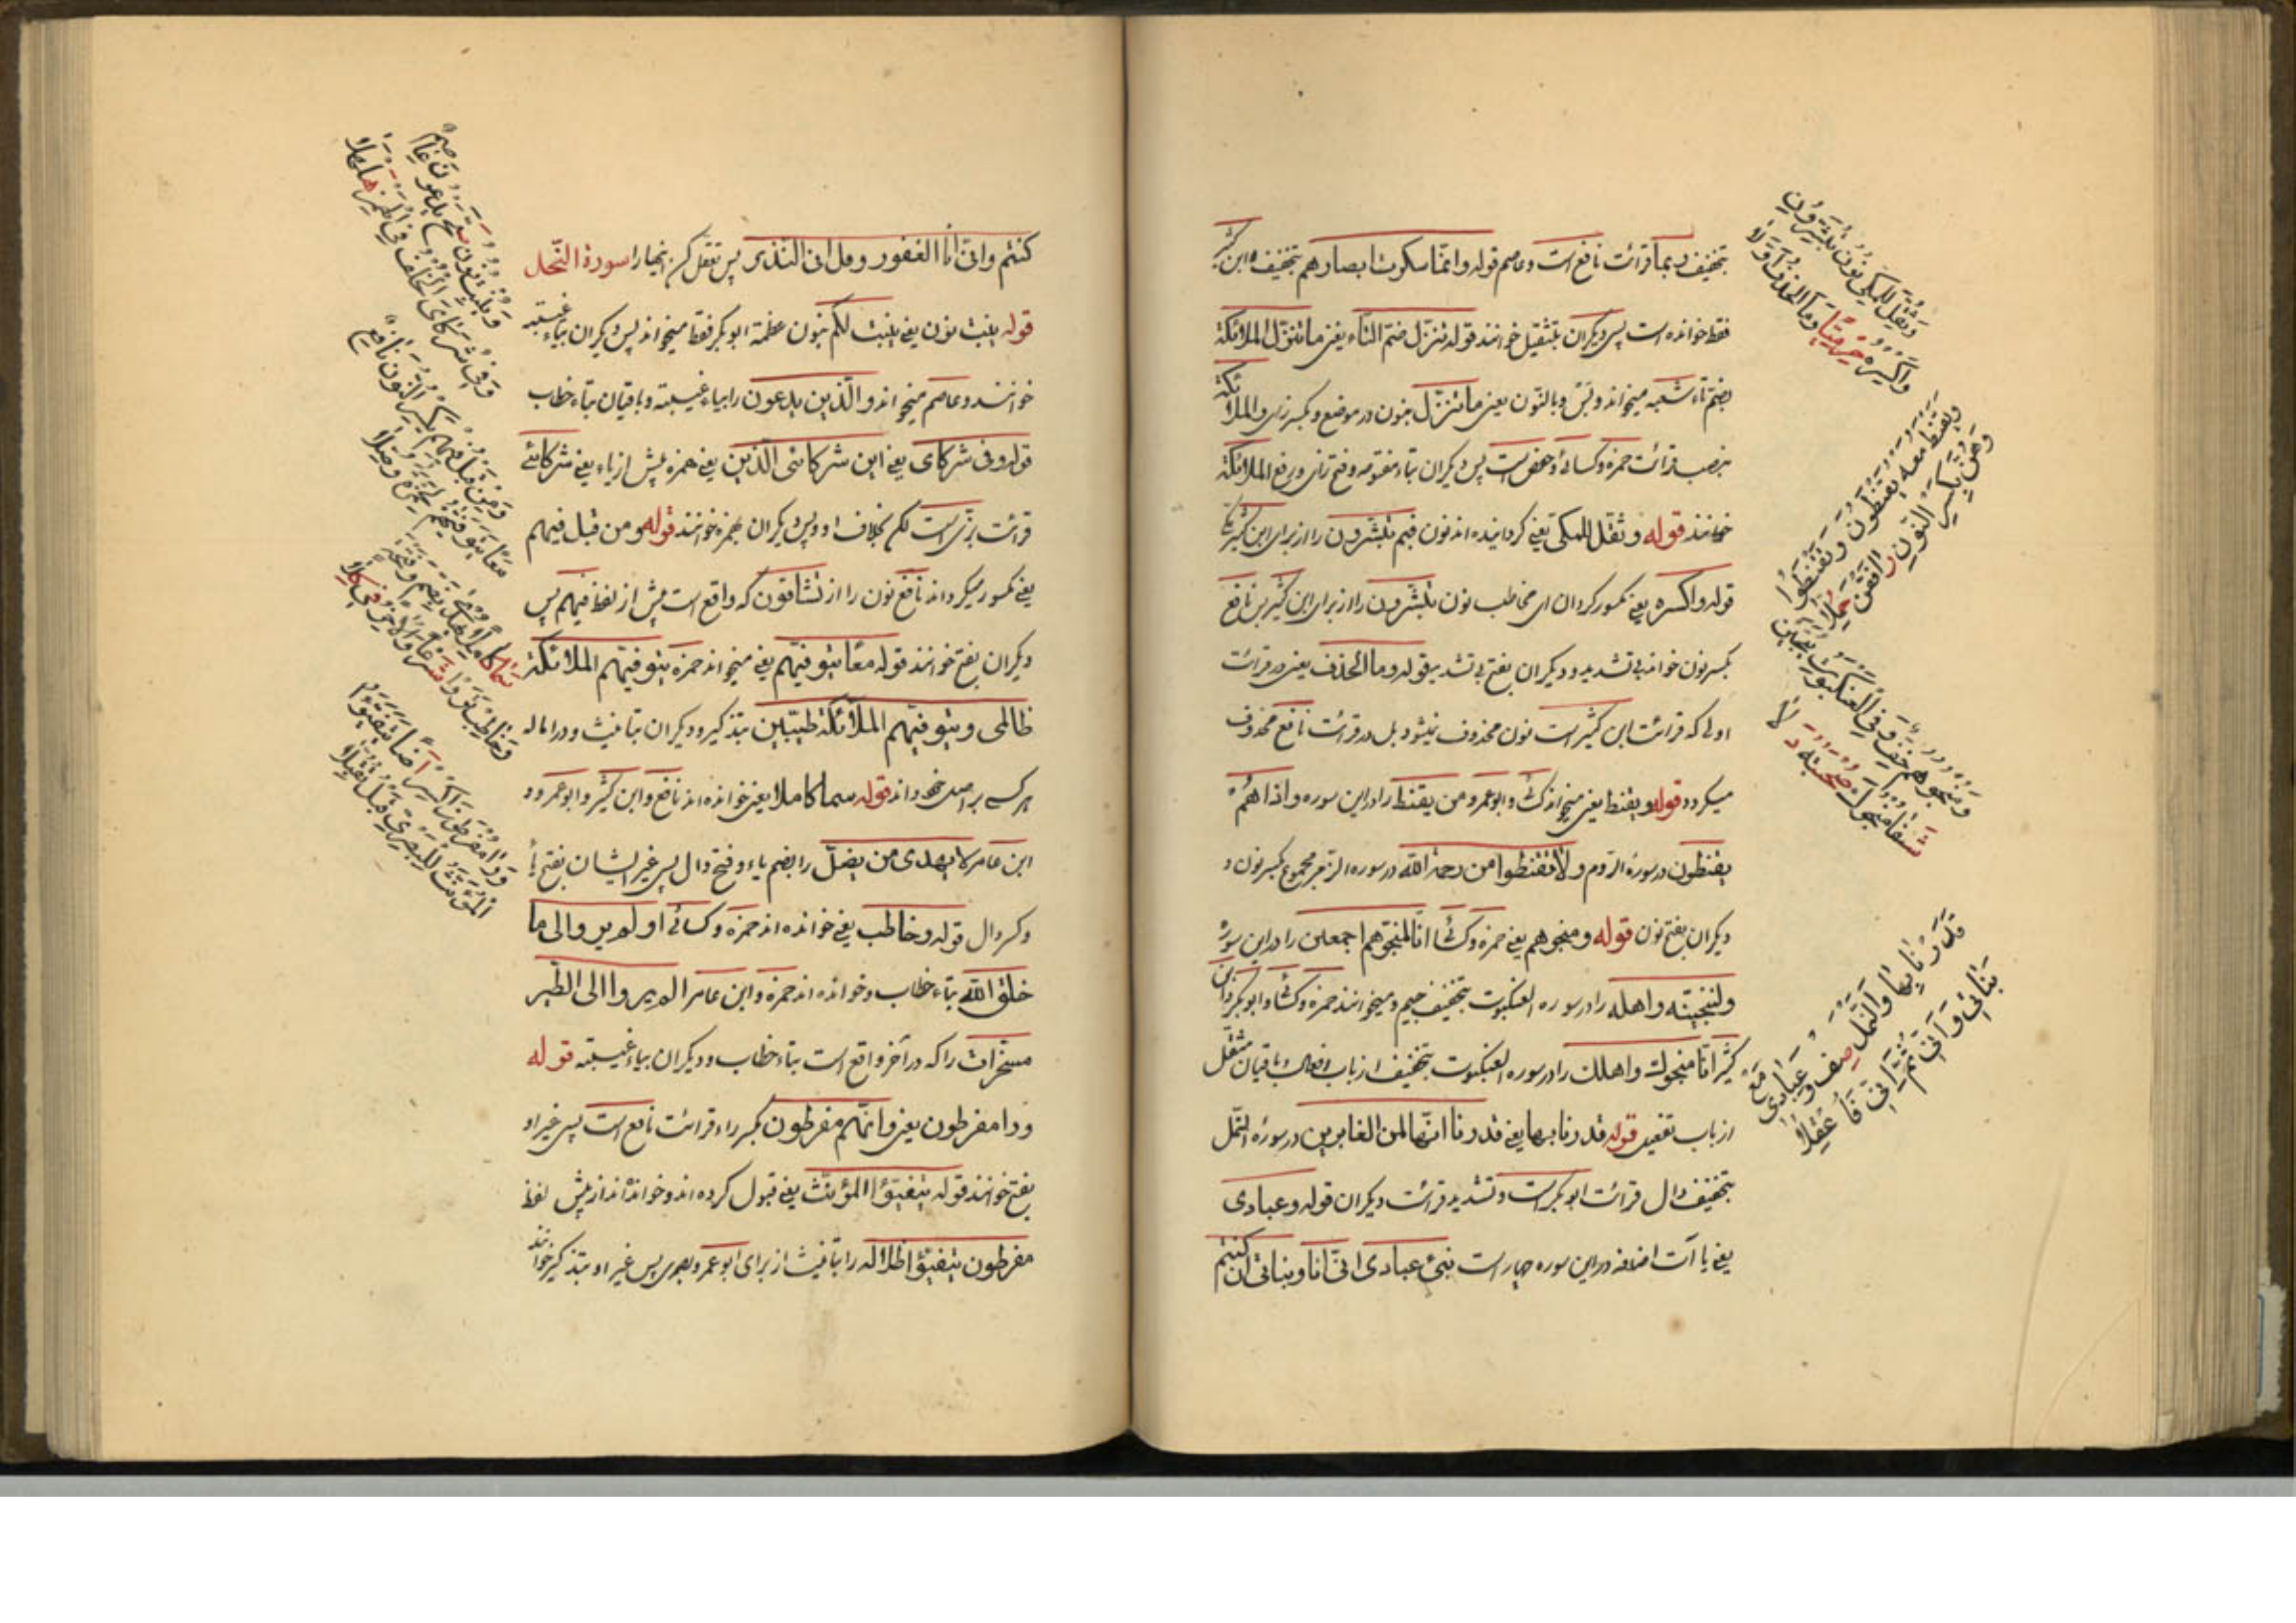 بتخفیف ربما قرائت نافع است و عاصم قوله وانما سکرت ابصارهم بتخفیف ابن کثیر
فقط خوانده است پس دیکران بتثقیل خوانند قوله تنزل ضم التاء یعنی ما تنزل الملائکة
بضم تاء شعبه میخواند و بس و بالنون یعنی ما ننزل بنون در موضع و بکسر زای و الملائکة
بنصب قرائت حمزه و کسائی و حفص است پس دیکران بتاء مفتوحه و فتح زای و رفع الملائکة
خوانند قوله و ثقل للمکی یعنی کردانیده اند نون فبم تبشرون را از برای ابن کثیر
قوله واکسره یعنی مکسور کردان ای مخاطب نون تبشرون را از برای ابن کثیر پس نافع
بکسر نون خواند بی تشدید و دیکران بفتح بی تشدید قوله وما الحذف یعنی در قرائت
اولی که قرائت ابن کثیر است نون محذوف نیشود بل در قرائت نافع محذوف
میکردد قوله و یقنط یعنی میخواند کسائی و ابو عمرو من یقنط را در این سوره و اذا هم
یقنطون در سورة الروم و لا تقنطوا من رحمة الله در سوره الزمر مجموع بکسر نون و
دیکران بفتح نون قوله و منجوهم یعنی حمزه و کسائی انا لمنجوهم اجمعین را در این سوره
ولننجینه واهله را در سوره العنکبوت بتخفیف جیم و میخوانند حمزه و کسائی و ابو بکر و ابن
کثیر انا منجوک واهلک را در سوره العنکبوت بتخفیف از باب افعال باقیان مثقل
از باب تفعیل قوله قدرنا بها یعنی قدرنا انها لمن الغابرین در سوره النمل
بتخفیف دال قرائت ابو بکر است و تشدید قرائت دیکران قوله و عبادی
یعنی یاآت اضافه در این سوره چهار است نبئ عبادی انی انا و بناتی ان کنتم
وثقل للمکی نون تبشرون
واکسره حرمیا وما الحذف اولا
ویقنط معه یقنطون وتقنطوا
وهن بکسر النون رافقن حملا
ومنجوهم خف وفی العنکبوت ننجین
شفا منجوک صحبته دلا
قدرنا بها والنمل صف وعباد مع
بناتی وانی ثم انی فاعقلا
کنتم وانی انا الغفور وقل انی النذیر پس تعقل کن اینها را سورة النحل
قوله ینبت نون یعنی ینبت لکم بنون عظمة ابو بکر فقط میخواند پس دیکران بیاء غیبته
خوانند و عاصم میخواند والذین یدعون را بیاء غیبته و باقیان بتاء خطاب
قوله و فی شرکای یعنی این شرکائی الذین یعنی همزه پیش از یاء یعنی شرکائی
قرائت بزی است لکن بخلاف او و پس دیکران بهمزه خوانند قوله ومن قبل فیهم
یعنی مکسور میکرداند نافع نون را از تشاقون که واقع است پیش از لفظ فیهم پس
دیکران بفتح خوانند قوله معا یتوفیهم یعنی میخواند حمزه یتوفیهم الملائکة
ظالمی و یتوفیهم الملائکة طیبین بتذکیر و دیکران بتانیث و در اماله
هر کسی بر اصل خود اند قوله سما کاملا یعنی خوانده اند نافع و ابن کثیر و ابو عمرو و
ابن عامر لا یهدی من یضل را بضم یاء و فتح دال پس غیر ایشان بفتح یا
و کسر دال قوله و خاطب یعنی خوانده اند حمزه و کسائی او لم یروا الی ما
خلق الله بتاء خطاب و خوانده اند حمزه و ابن عامر الم یروا الی الطیر
مسخرات را که در آخر واقع است بتاء خطاب و دیکران بیاء غیبته قوله
ورا مفرطون یعنی وانهم مفرطون بکسر راء قرائت نافع است پس غیر او
بفتح خوانند قوله یتفیؤ المؤنث یعنی قبول کرده اند و خوانده اند از پیش لفظ
مفرطون یتفیؤا ظلاله را بتانیث از برای ابو عمرو بصری پس غیر او بتذکیر خوانند
وینبت نون صح یدعون عاصم
وفی شرکای الخلف فی الهمز هلهلا
ومن قبل فیهم یکسر النون نافع
معا یتوفیهم لحمزة وصلا
سما کاملا یهدی بضم وفتحة
وخاطب تروا شرعا والاخر فی کلا
ورا مفرطون اکسر اضا یتفیؤا
المؤنث للبصری قبل تقبلا